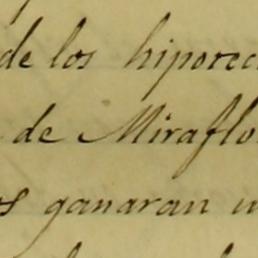 de los hipotec
de Miraflo
os ganaran u